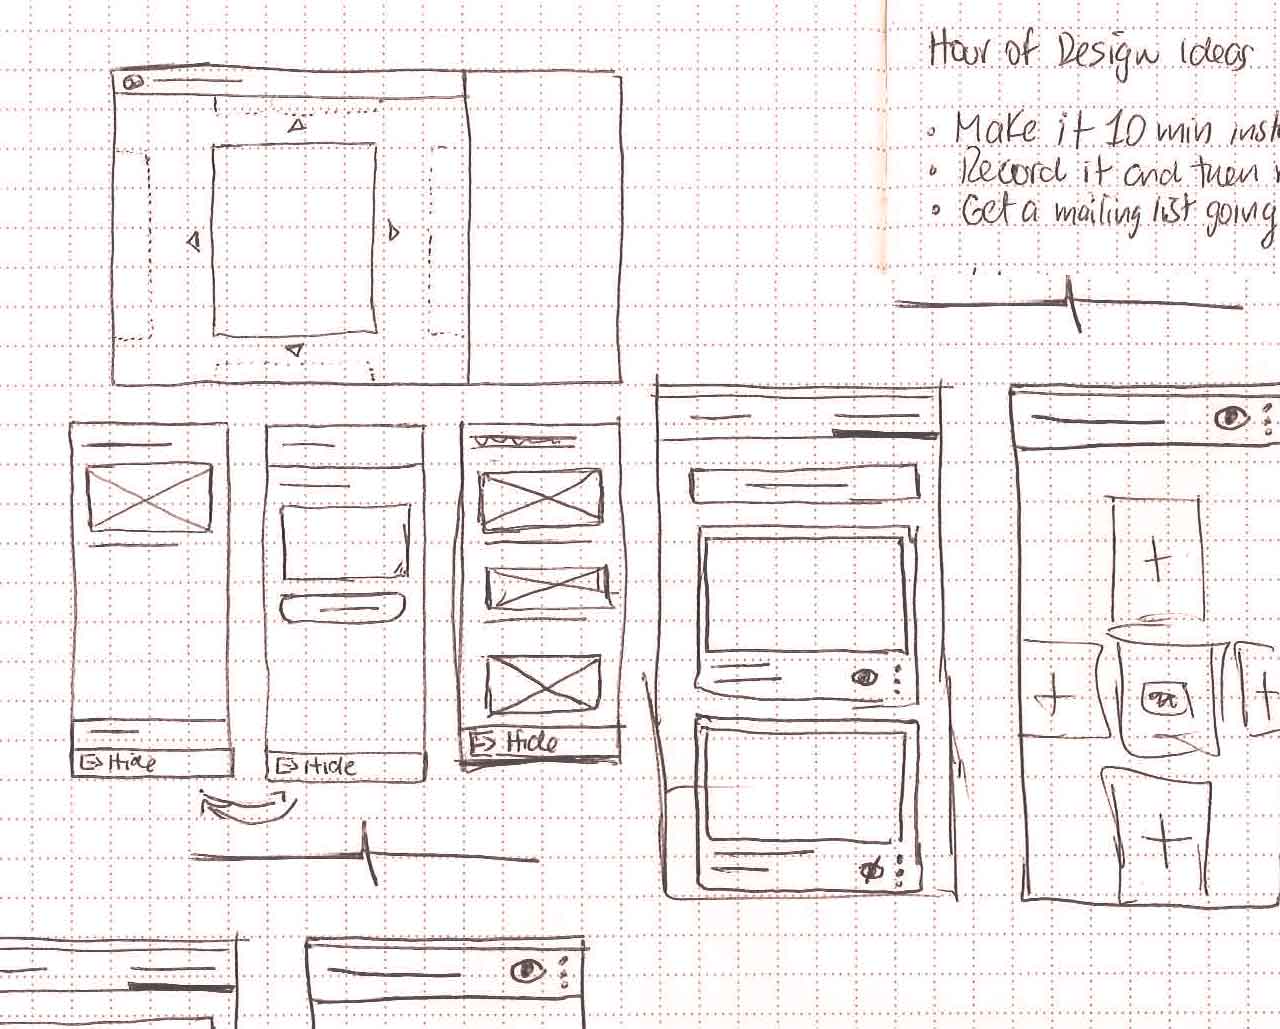 Hour of Design ideas
• Make it 10 min
• Record it and then
• Get a mailing list going
Hide
Hide
Hide